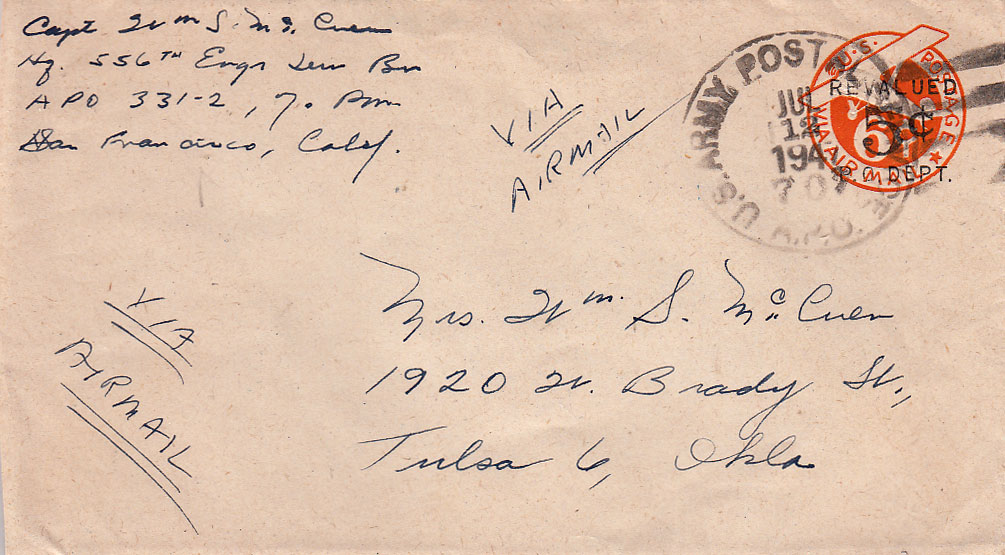 Capt Wm S. McCuen
Hq. 556TH Engr Serv Bn
APO 331-2, % Pm
San Francisco, Calif.
VIA
AIRMAIL
U.S. ARMY POSTAL SERVICE
JUL
12
194
A.P.O.
U.S. POSTAGE
REVALUED
5¢
P.O. DEPT.
6
VIA AIR MAIL
Mrs. Wm. S. McCuen
1920 W. Brady St.,
Tulsa 6, Okla
VIA
AIRMAIL